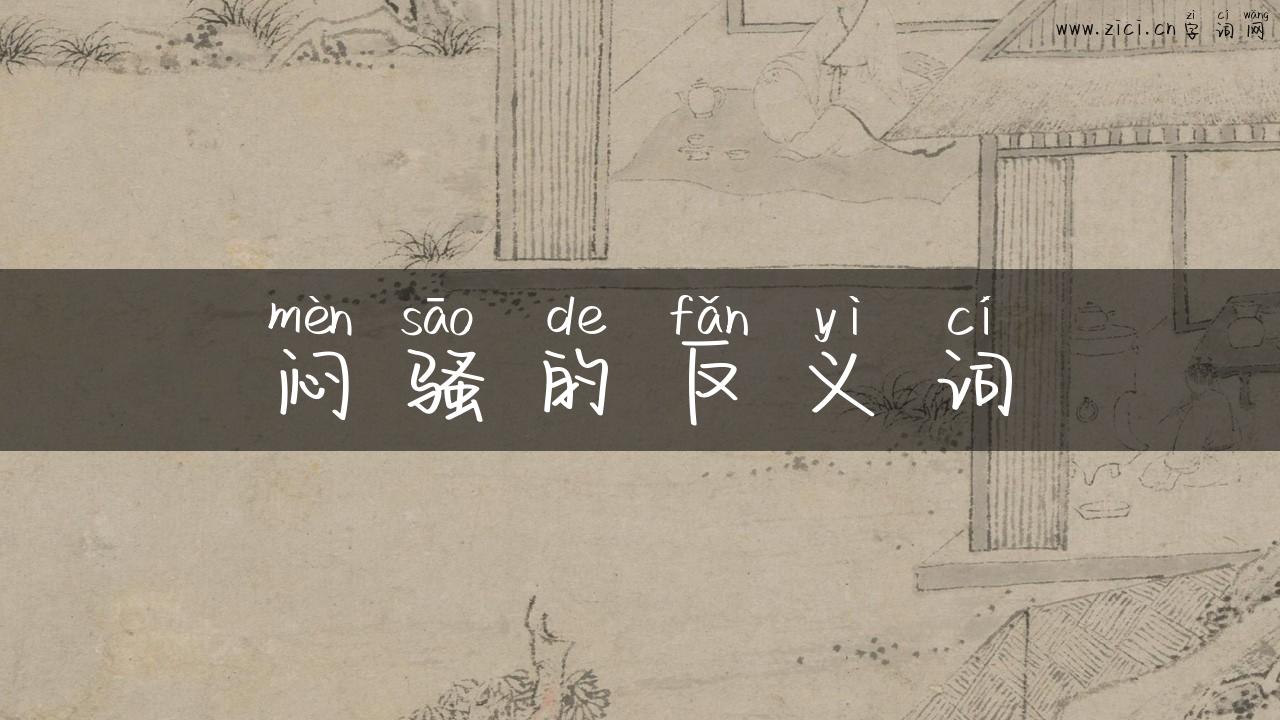 zì cí wǎng
www.zici.cn 字词网
mèn sāo de fǎn yì cí
闷骚的反义词